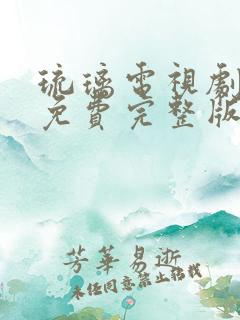 琉璃電視劇
免費完整版
芳華易逝
未任同意禁止轉載